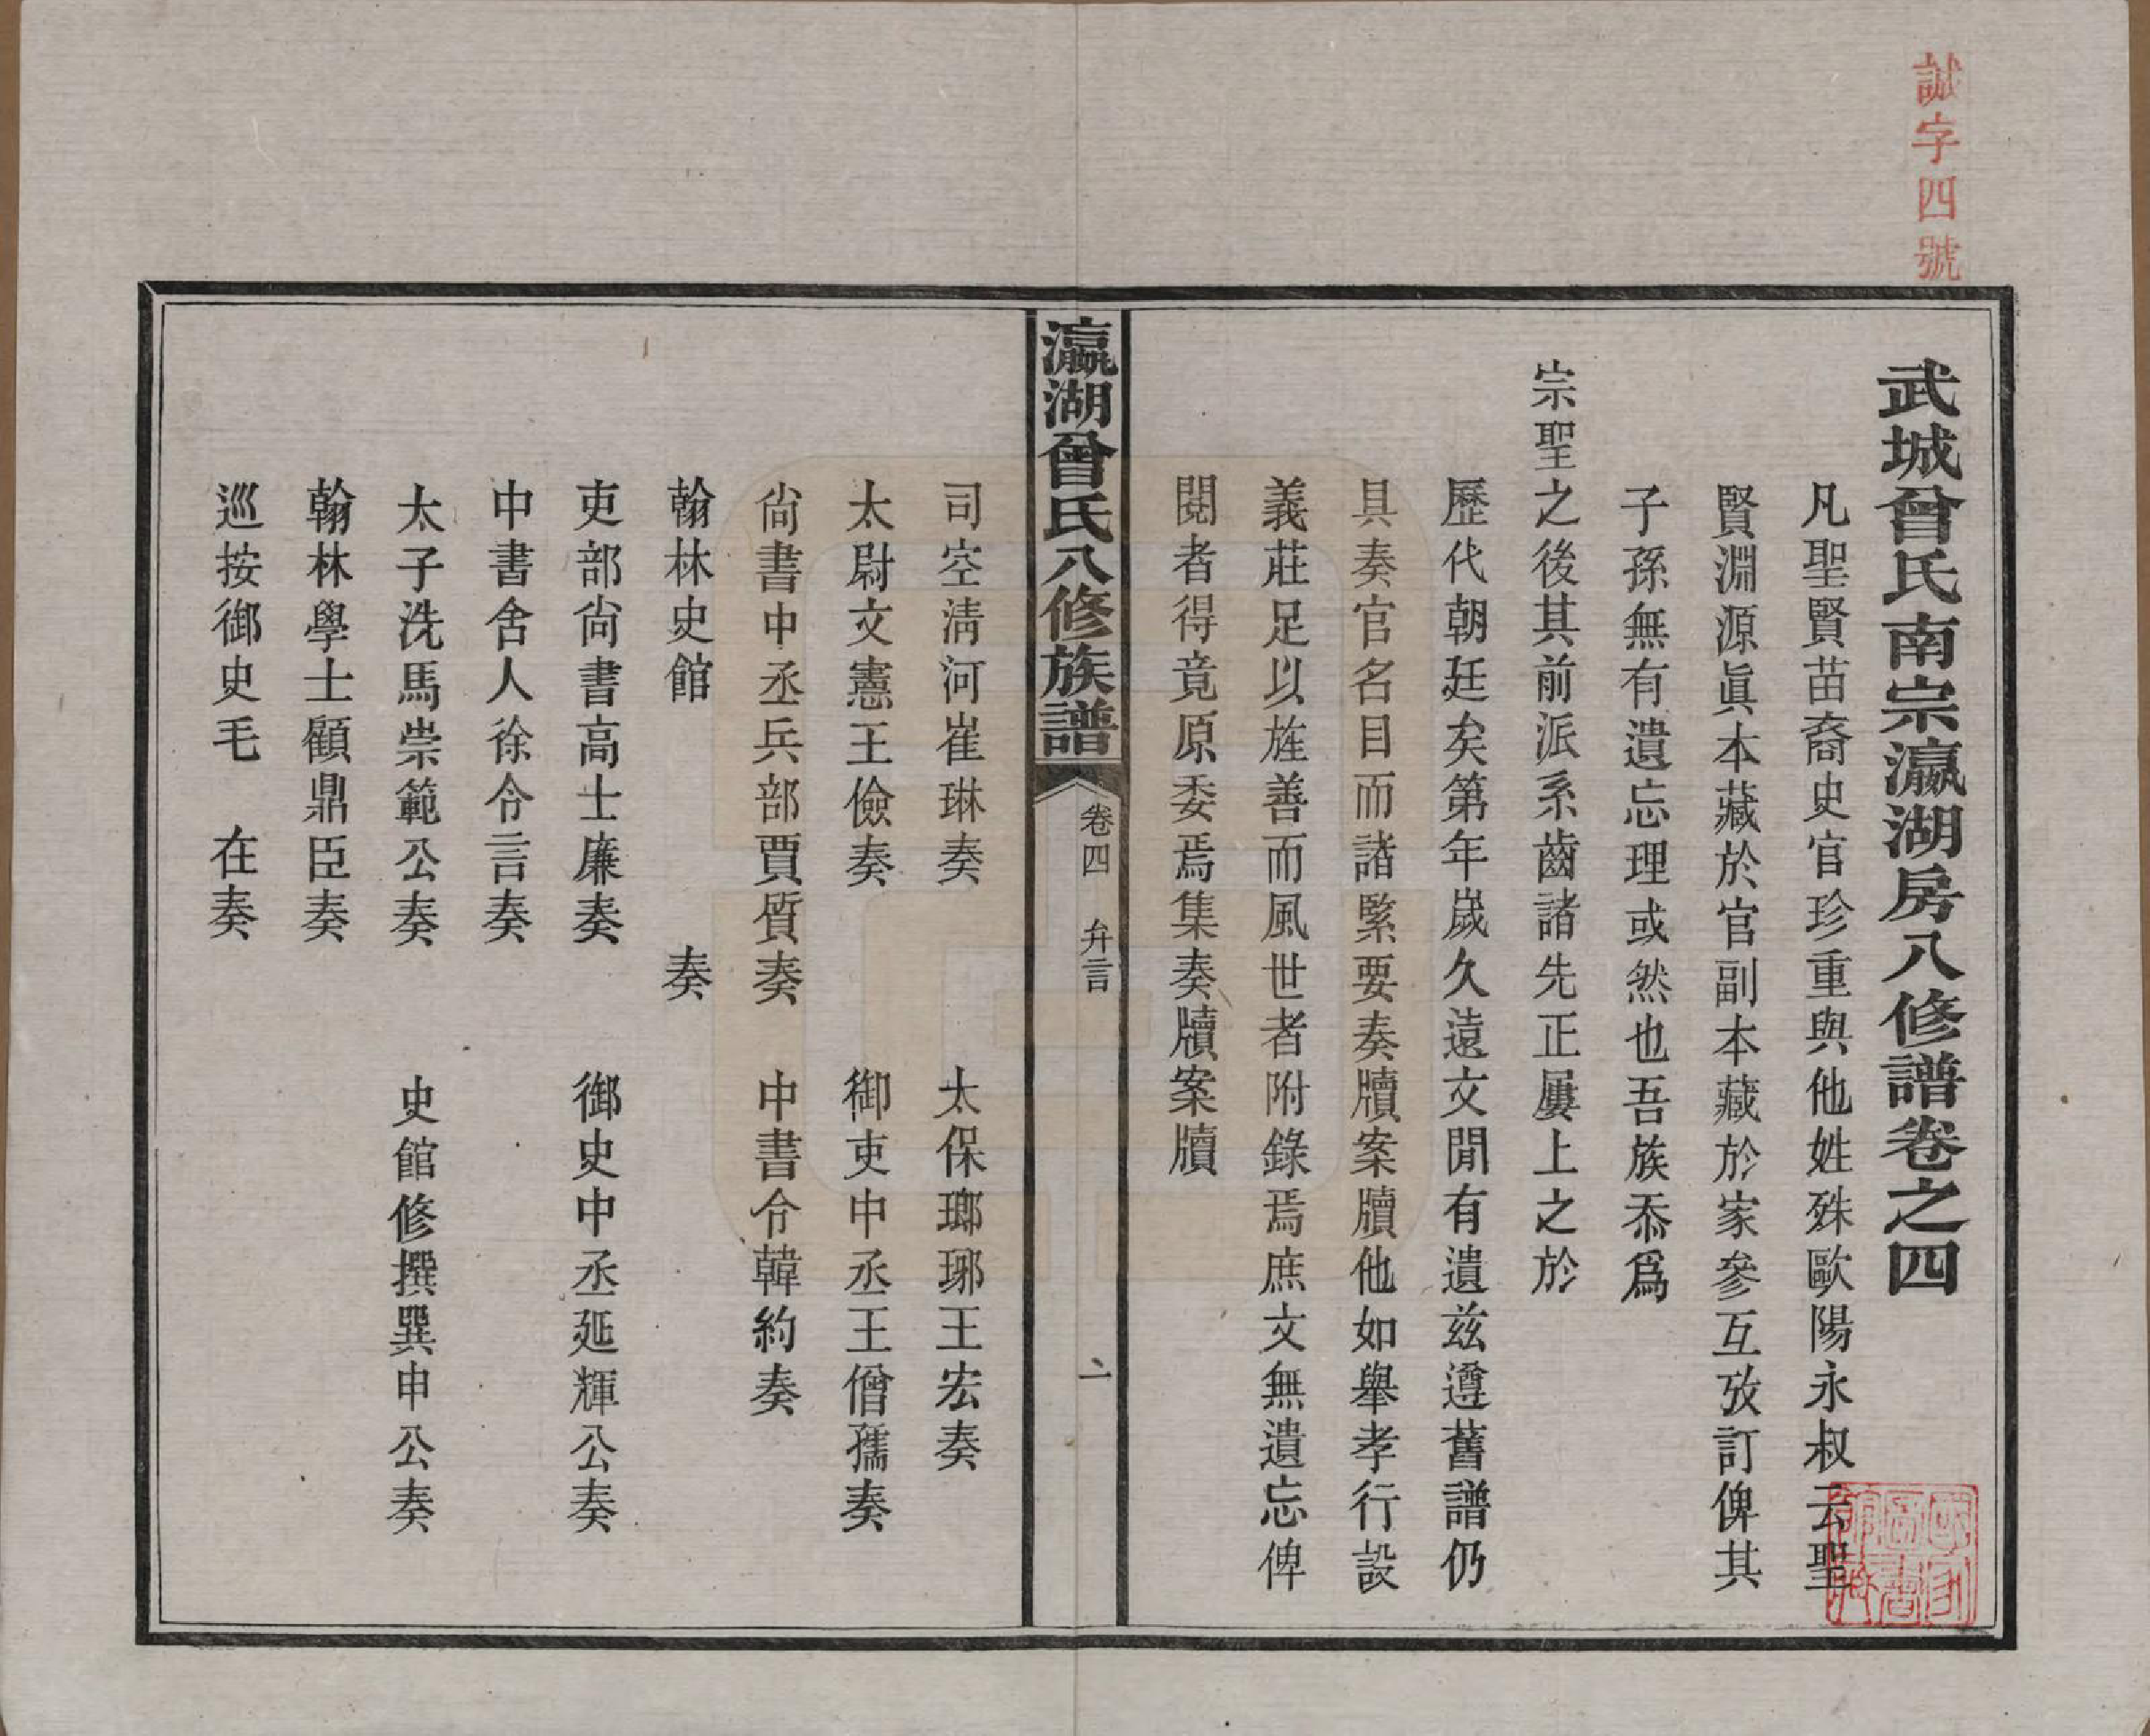 誠字四號
武城曾氏南宗瀛湖房八修譜卷之四
凡聖賢苗裔史官珍重與他姓殊歐陽永叔云聖
賢淵源眞本藏於官副本藏於家參互攷訂俾其
子孫無有遺忘理或然也吾族忝爲
宗聖之後其前派系齒諸先正屢上之於
歷代朝廷矣第年嵗久遠文閒有遺玆遵舊譜仍
具奏官名目而諸緊要奏牘案牘他如舉孝行設
義莊足以旌善而風世者附錄焉庶文無遺忘俾
閱者得竟原委焉集奏牘案牘
瀛湖曾氏八修族譜
卷四 弁言
一
司空淸河崔琳奏 太保瑯琊王宏奏
太尉文憲王儉奏 御吏中丞王僧孺奏
尙書中丞兵部賈質奏 中書令韓約奏
翰林史館 奏
吏部尙書高士廉奏 御史中丞延輝公奏
中書舍人徐令言奏
太子洗馬崇範公奏 史館修撰巽申公奏
翰林學士顧鼎臣奏
巡按御史毛 在奏
國家圖書館藏